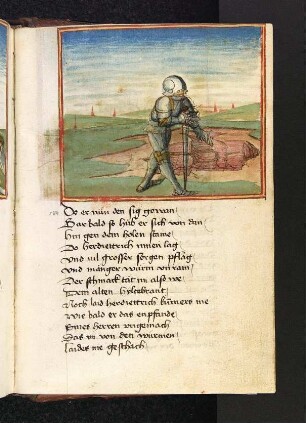 Do er nun den sig gewan
Gar bald so hub er sich von dan
hin gen dem holen staine
Do herdietrich innen lag
vnd vil grosser sorgen pflag
vnd manger wurm vnrain
Der schmack tät im also we
Dem alten hyltebrant
Noch laid herdiettrich kumers me
wie bald er das enpfande
Seines herren vngemach
Das im von den wurmen
laides me geschach